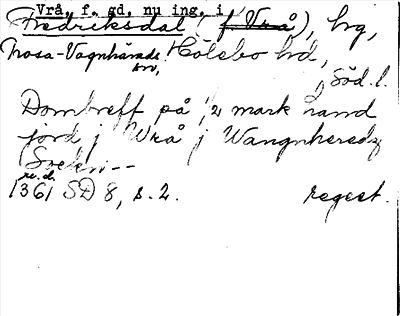 Vrå, f. gd, nu ing. i
Fredriksdal (f Vrå), hrg,
Trosa-Vagnhärads Hölebo hd,
sn,
Söd. l.
Dombreff på 1/2 mark land
jord j Wrå j Wangnheredz
Sokn --
re. d.
1361 SD 8, s. 2. regest.